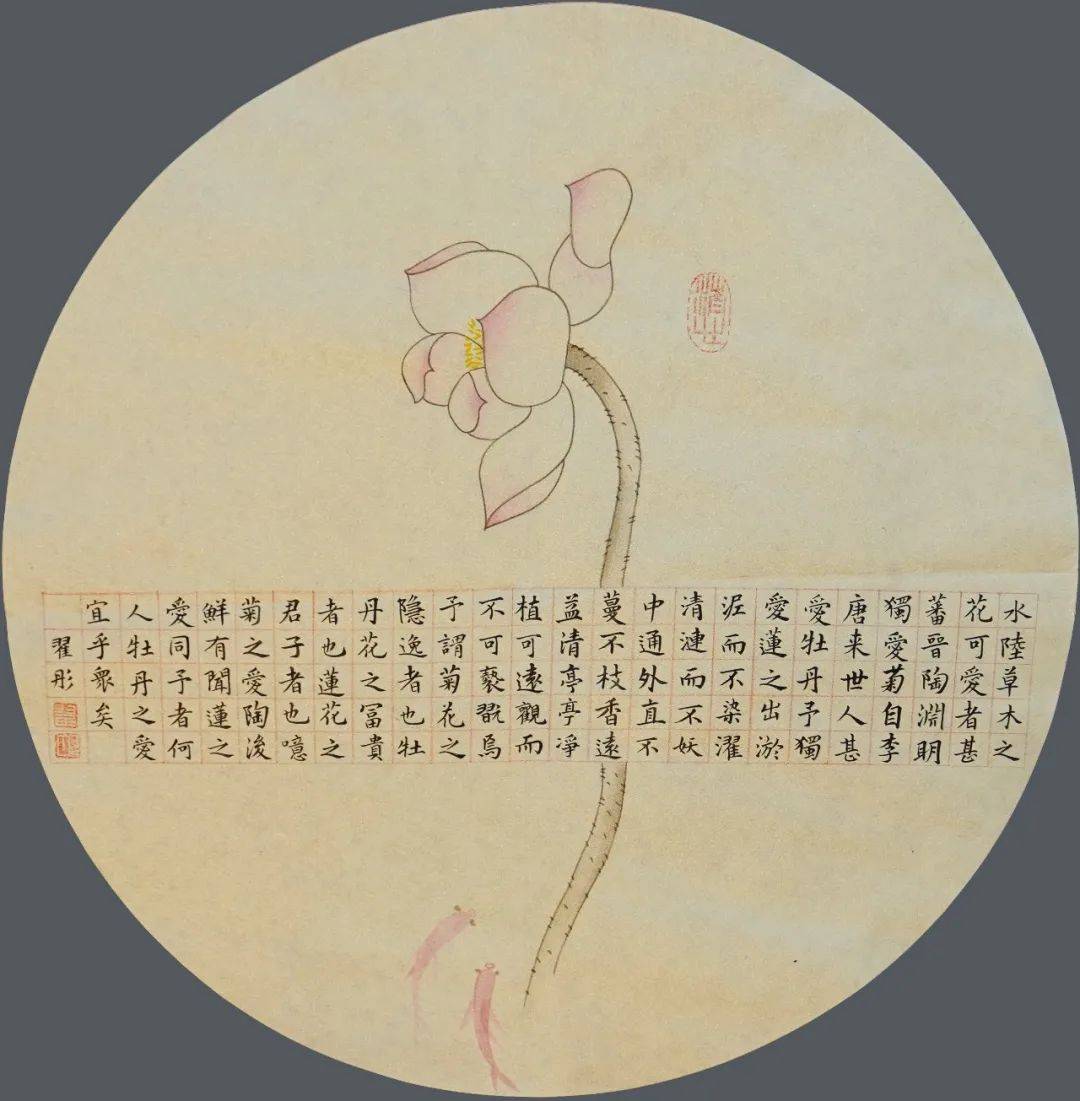 水陸草木之
花可愛者甚
蕃晉陶淵明
獨愛菊自李
唐来世人甚
愛牡丹予獨
愛蓮之出淤
泥而不染濯
清漣而不妖
中通外直不
蔓不枝香遠
益清亭亭凈
植可遠觀而
不可褻翫焉
予謂菊花之
隱逸者也牡
丹花之冨貴
者也蓮花之
君子者也噫
菊之愛陶後
鮮有聞蓮之
愛同予者何
人牡丹之愛
宜乎眾矣
翟彤